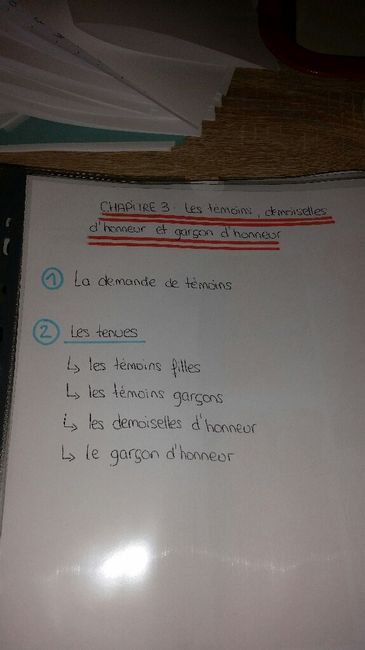 CHAPITRE 3 : Les témoins, demoiselles
d'honneur et garçon d'honneur
1 La demande de témoins
2 Les tenues
↳ les témoins filles
↳ les témoins garçons
↳ les demoiselles d'honneur
↳ le garçon d'honneur